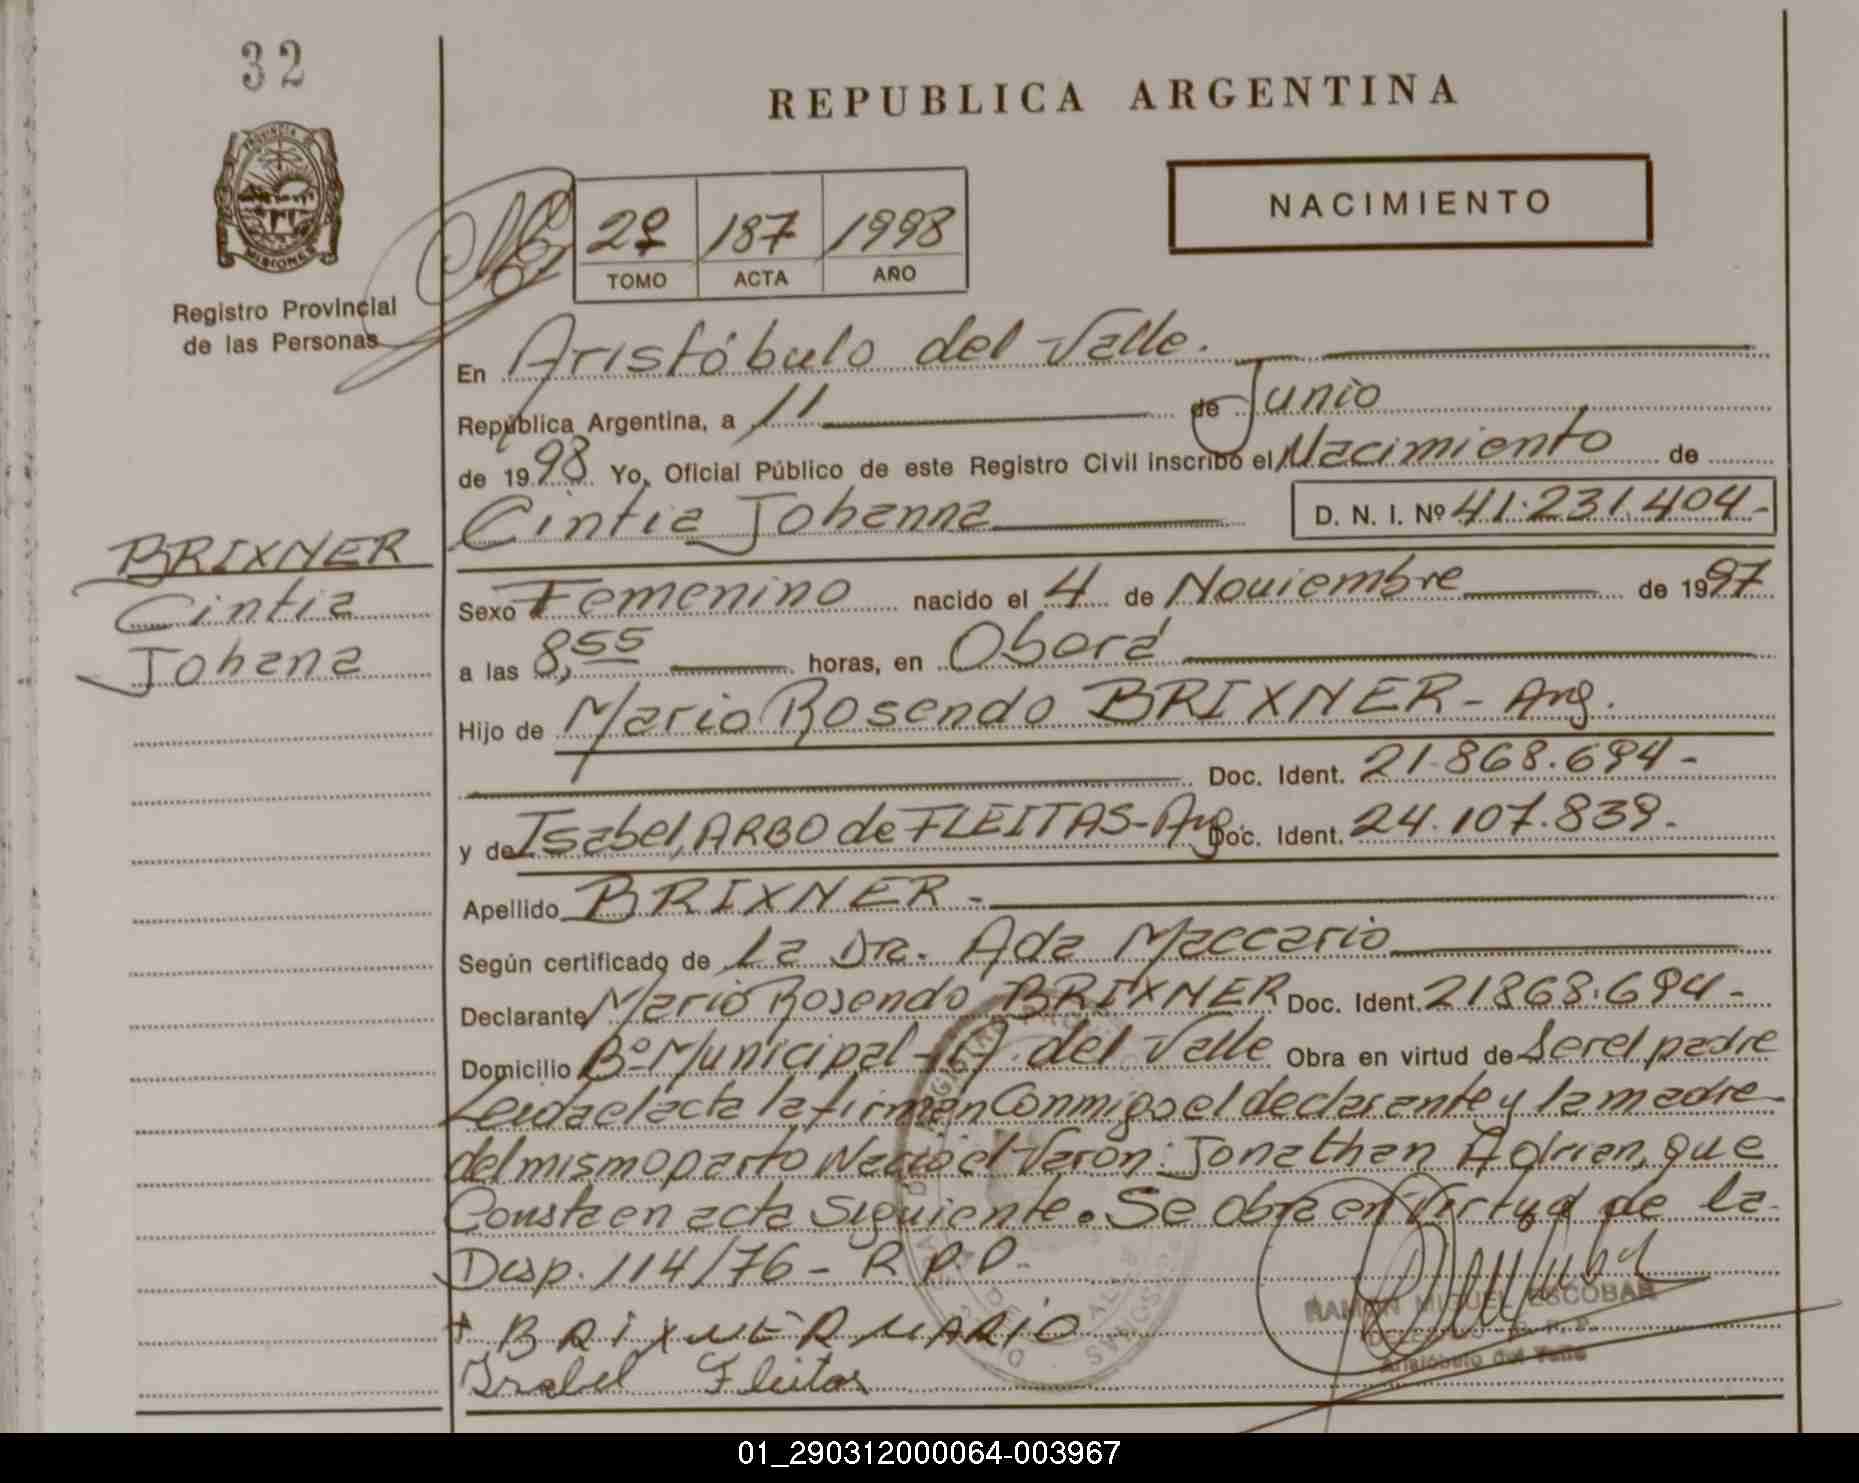 32
REPUBLICA ARGENTINA
PROVINCIA DE
MISIONES
Registro Provincial
de las Personas
187 1998
TOMO ACTA AÑO
NACIMIENTO
En Aristóbulo del Valle.
República Argentina, a 11 de Junio
de 1998 Yo, Oficial Público de este Registro Civil inscribo el Nacimiento de
Cintia Johanna D. N. I. Nº 41.231.404-
BRIXNER
Cintia
Johana
Sexo Femenino nacido el 4 de Noviembre de 1997
a las 8,55 horas, en Oberá
Hijo de Mario Rosendo BRIXNER - Arg.
Doc. Ident. 21.868.694-
y de Isabel, ARBO de FLEITAS-Arg. Doc. Ident. 24.107.839-
Apellido BRIXNER -
Según certificado de La Dra. Ada Maccario
Declarante Mario Rosendo BRIXNER Doc. Ident. 21868.694-
Domicilio Bº Municipal - A. del Valle Obra en virtud de Ser el padre
Leída el acta la firman Conmigo el declarante y la madre
del mismo parto Nació el Varón: Jonathan Adrian, que
Consta en acta Siguiente. Se obra en virtud de la
Disp. 114/76 - R.P.P.
+ BRIXNER MARIO
Isabel Fleitas
RAMON MIGUEL ESCOBAR
Aristóbulo del Valle
01_290312000064-003967